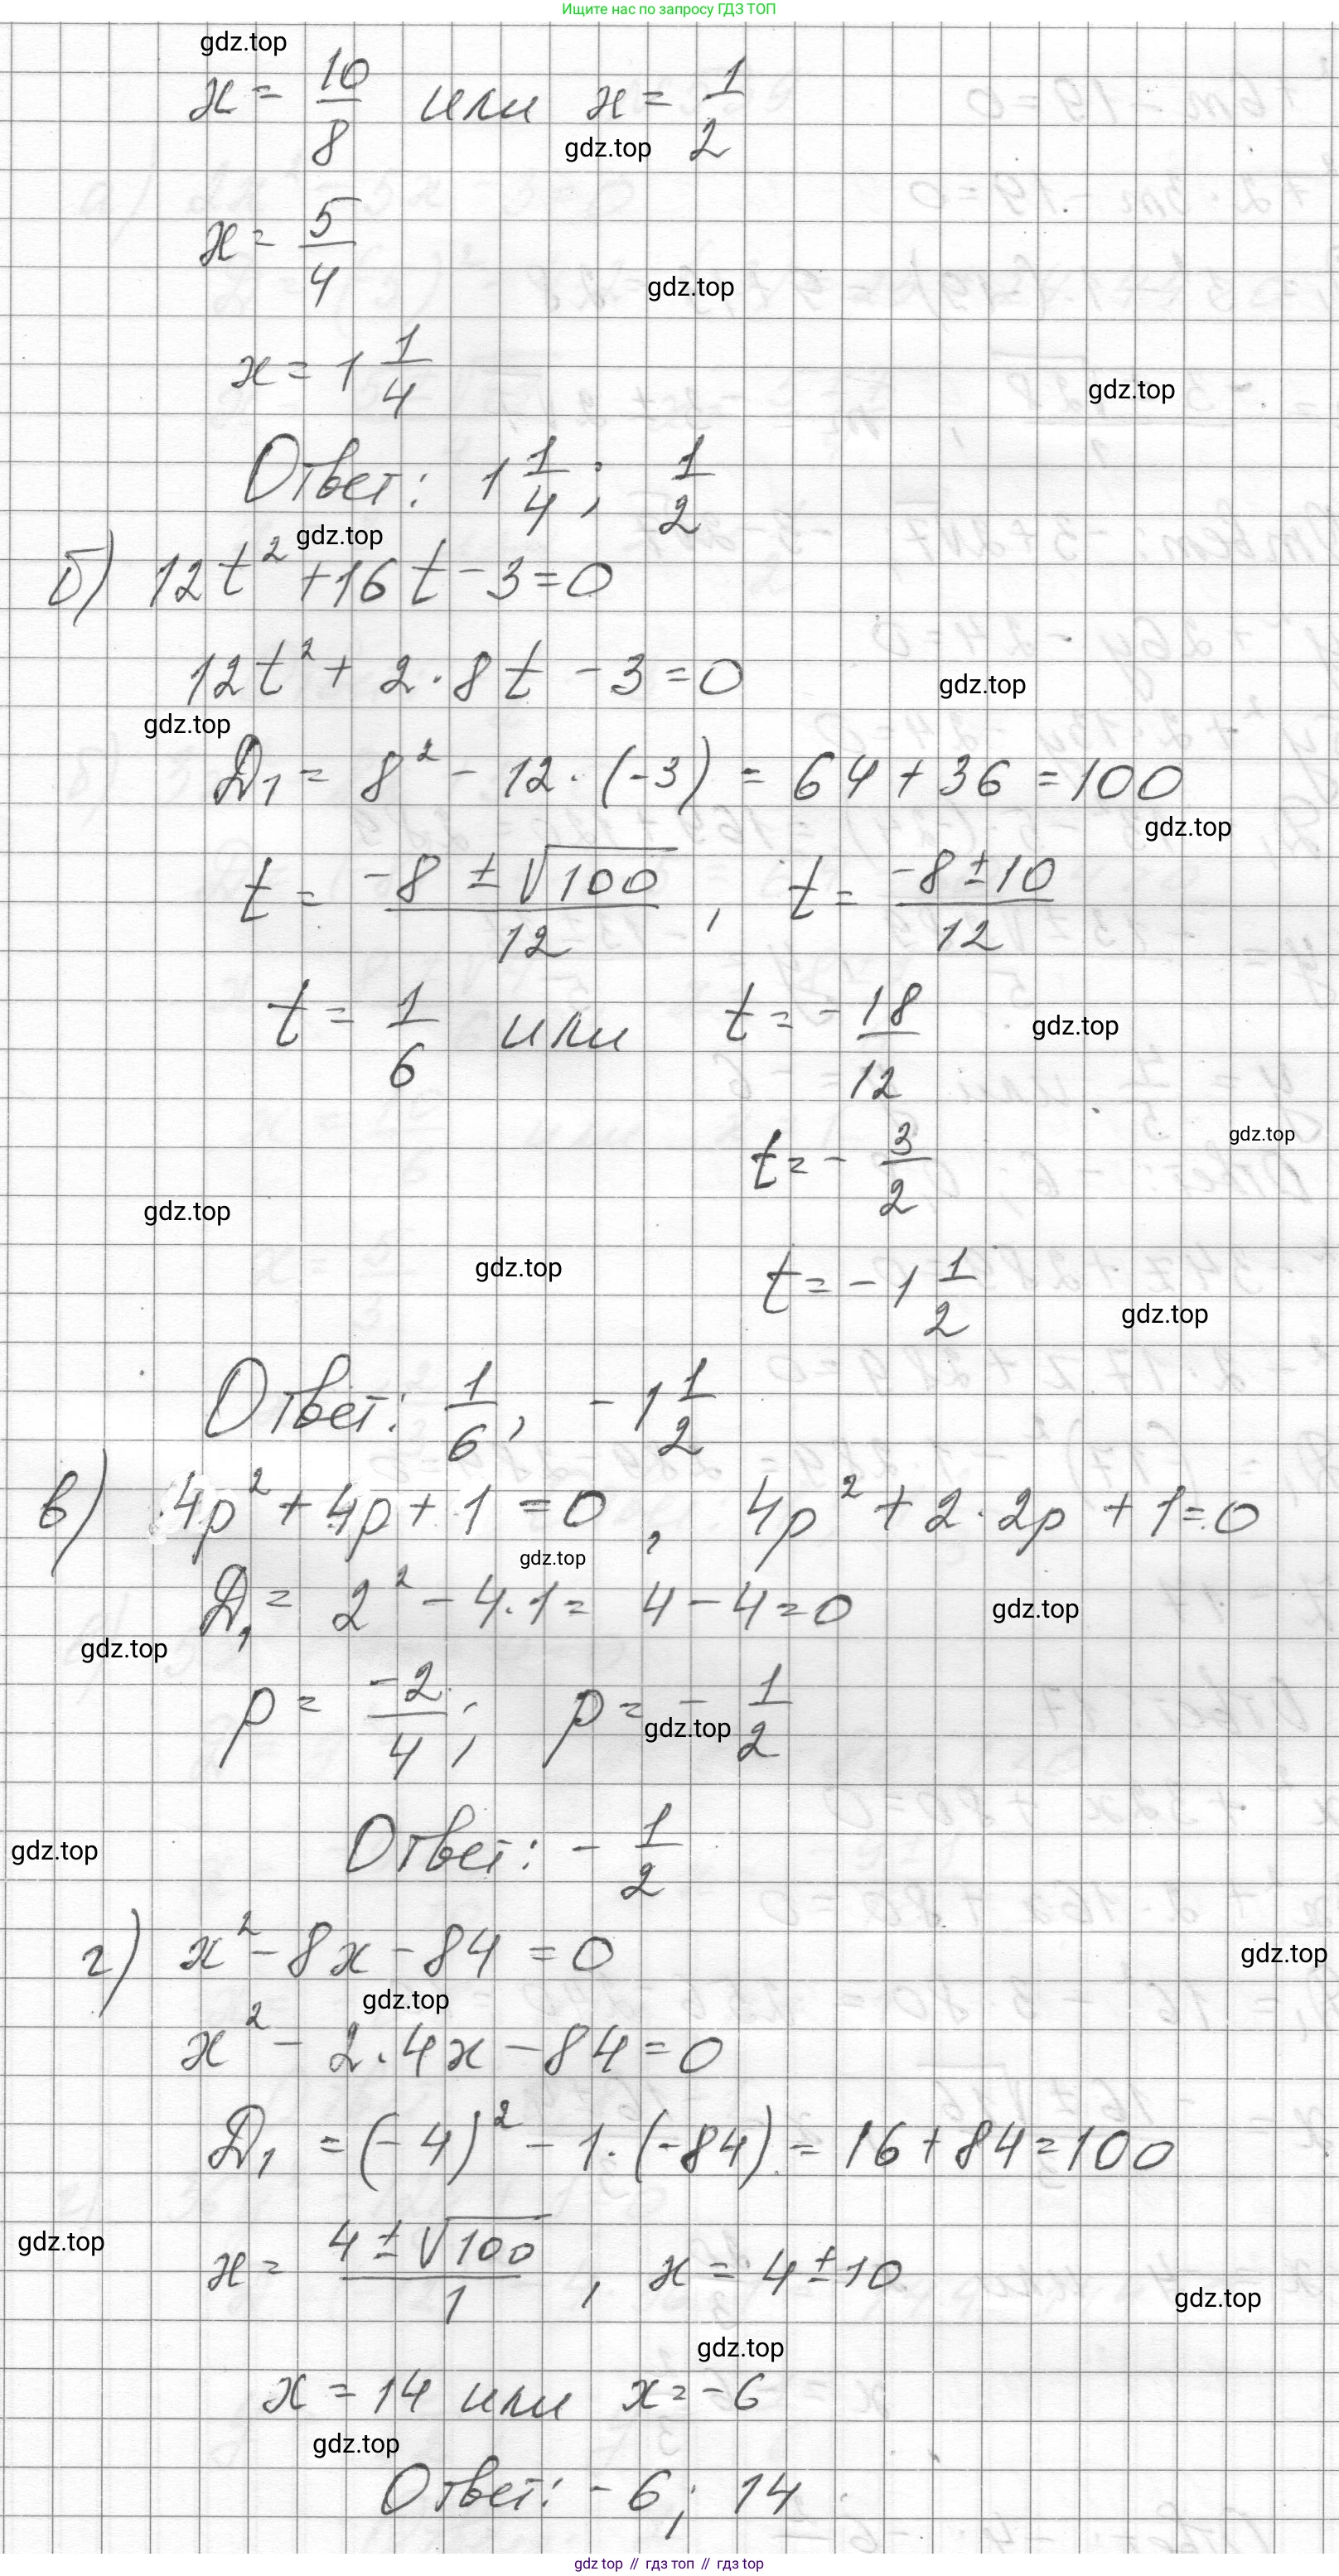 Ищите нас по запросу ГДЗ ТОП
gdz.top
x = 10/8 или x = 1/2
gdz.top
x = 5/4
gdz.top
x = 1 1/4
gdz.top
Ответ: 1 1/4; 1/2
gdz.top
б) 12t² + 16t - 3 = 0
12t² + 2·8t - 3 = 0
gdz.top
gdz.top
D₁ = 8² - 12·(-3) = 64 + 36 = 100
gdz.top
t = (-8 ± √100)/12, t = (-8 ± 10)/12
t = 1/6 или t = -18/12
gdz.top
t = -3/2
gdz.top
gdz.top
gdz.top
t = -1 1/2
gdz.top
Ответ: 1/6, -1 1/2
в) 4p² + 4p + 1 = 0, 4p² + 2·2p + 1 = 0
gdz.top
D₁ = 2² - 4·1 = 4 - 4 = 0
gdz.top
gdz.top
p = -2/4; p = -1/2
gdz.top
Ответ: -1/2
gdz.top
г) x² - 8x - 84 = 0
gdz.top
gdz.top
x² - 2·4x - 84 = 0
D₁ = (-4)² - 1·(-84) = 16 + 84 = 100
gdz.top
x = (4 ± √100)/1, x = 4 ± 10
gdz.top
gdz.top
x = 14 или x = -6
gdz.top
Ответ: -6; 14
gdz top // гдз топ // gdz top